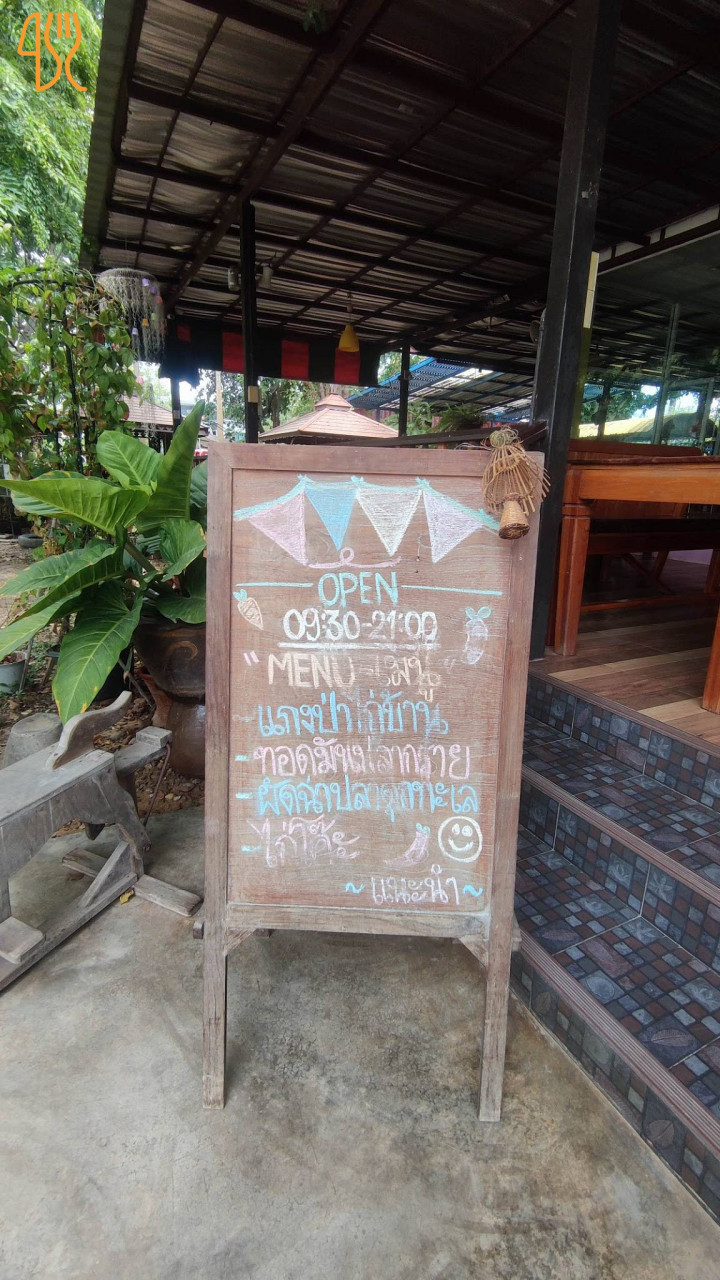 OPEN
09:30-21:00
"MENU เมนู"
- แกงป่าไก่บ้าน
- ทอดมันปลากราย
- ผัดฉ่าปลาดุกทะเล
- ไก่โต๊ะ
~ แนะนำ ~